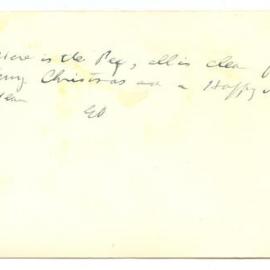 Here is the Peg, all is clear f
Christmas and a Happy
Ed